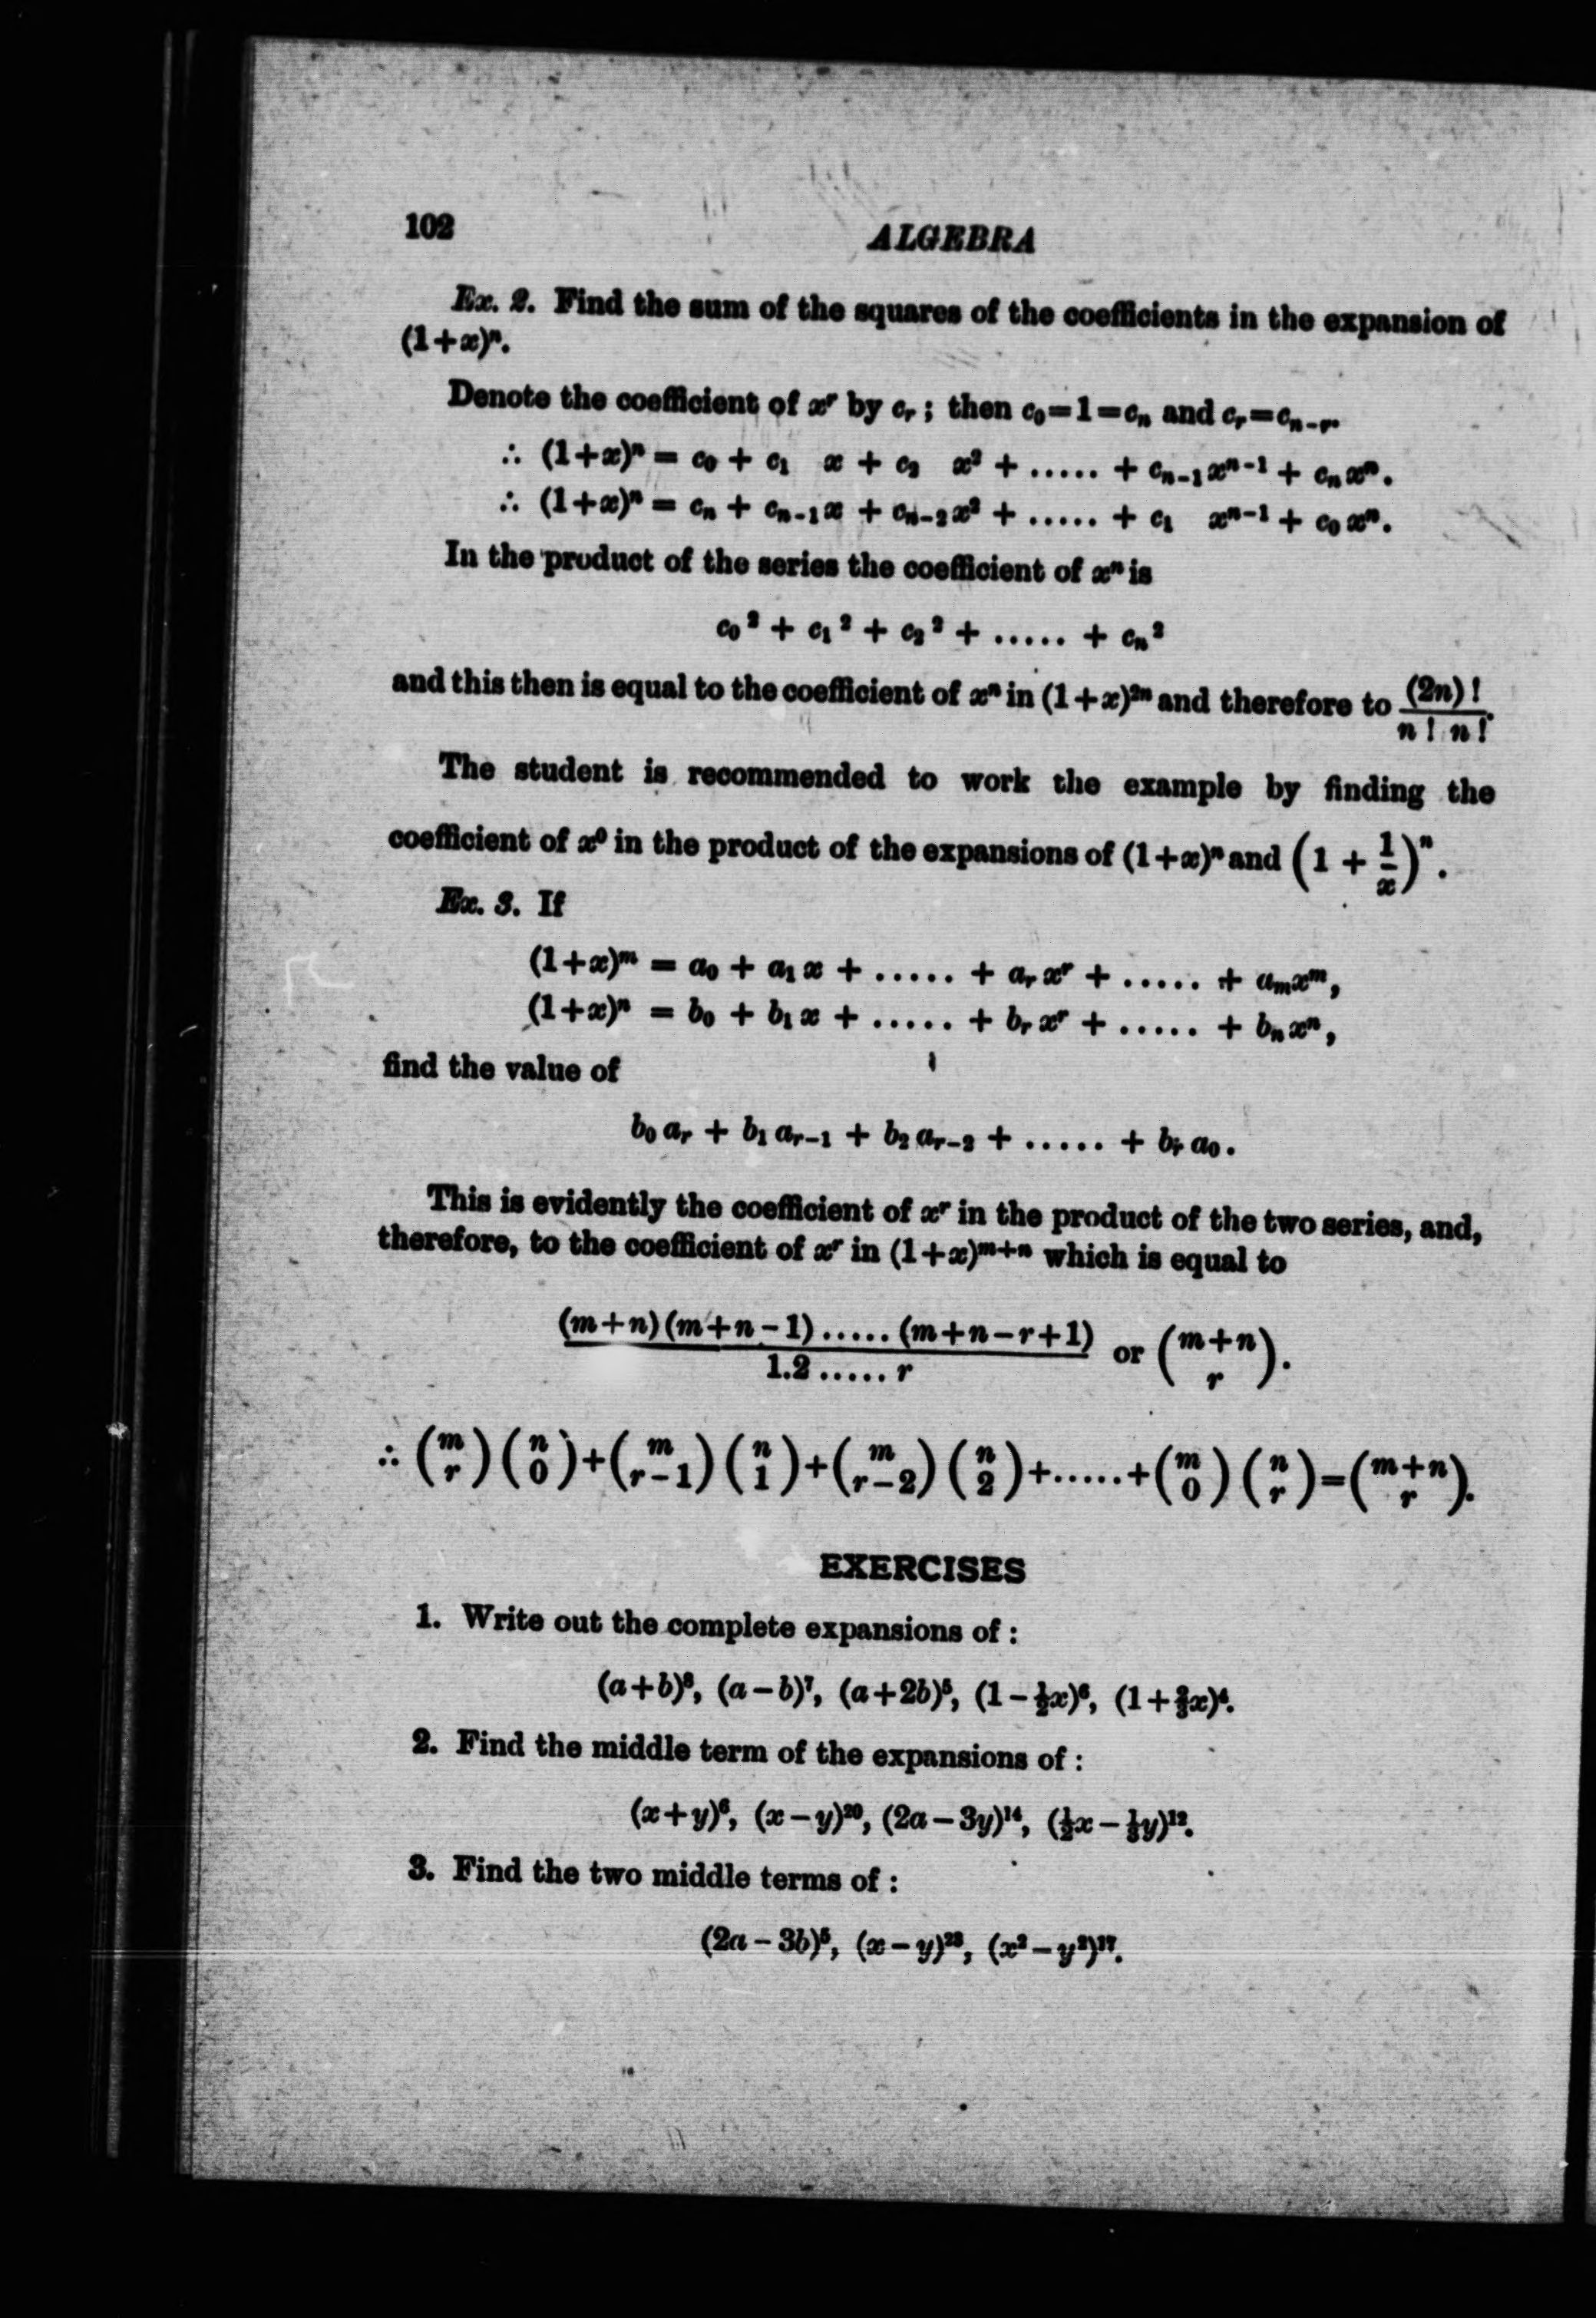 102
ALGEBRA
Ex. 2. Find the sum of the squares of the coefficients in the expansion of
(1+x)ⁿ.
Denote the coefficient of xʳ by cᵣ ; then c₀=1=cₙ and cᵣ=cₙ₋ᵣ.
∴ (1+x)ⁿ = c₀ + c₁ x + c₂ x² + ..... + cₙ₋₁xⁿ⁻¹ + cₙxⁿ.
∴ (1+x)ⁿ = cₙ + cₙ₋₁x + cₙ₋₂x² + ..... + c₁ xⁿ⁻¹ + c₀xⁿ.
In the product of the series the coefficient of xⁿ is
c₀² + c₁² + c₂² + ..... + cₙ²
and this then is equal to the coefficient of xⁿ in (1+x)²ⁿ and therefore to (2n)! / n! n!.
The student is recommended to work the example by finding the
coefficient of x⁰ in the product of the expansions of (1+x)ⁿ and (1 + 1/x)ⁿ.
Ex. 3. If
(1+x)ᵐ = a₀ + a₁x + ..... + aᵣxʳ + ..... + aₘxᵐ,
(1+x)ⁿ = b₀ + b₁x + ..... + bᵣxʳ + ..... + bₙxⁿ,
find the value of
b₀aᵣ + b₁aᵣ₋₁ + b₂aᵣ₋₂ + ..... + bᵣa₀.
This is evidently the coefficient of xʳ in the product of the two series, and,
therefore, to the coefficient of xʳ in (1+x)ᵐ⁺ⁿ which is equal to
(m+n)(m+n−1).....(m+n−r+1) / 1.2.....r or (m+n r).
∴ (m r)(n 0)+(m r−1)(n 1)+(m r−2)(n 2)+......+(m 0)(n r)=(m+n r).
EXERCISES
1. Write out the complete expansions of :
(a+b)⁸, (a−b)⁷, (a+2b)⁵, (1−½x)⁶, (1+⅔x)⁴.
2. Find the middle term of the expansions of :
(x+y)⁶, (x−y)²⁰, (2a−3y)¹⁴, (½x−⅓y)¹².
3. Find the two middle terms of :
(2a−3b)⁵, (x−y)²³, (x²−y²)¹⁷.